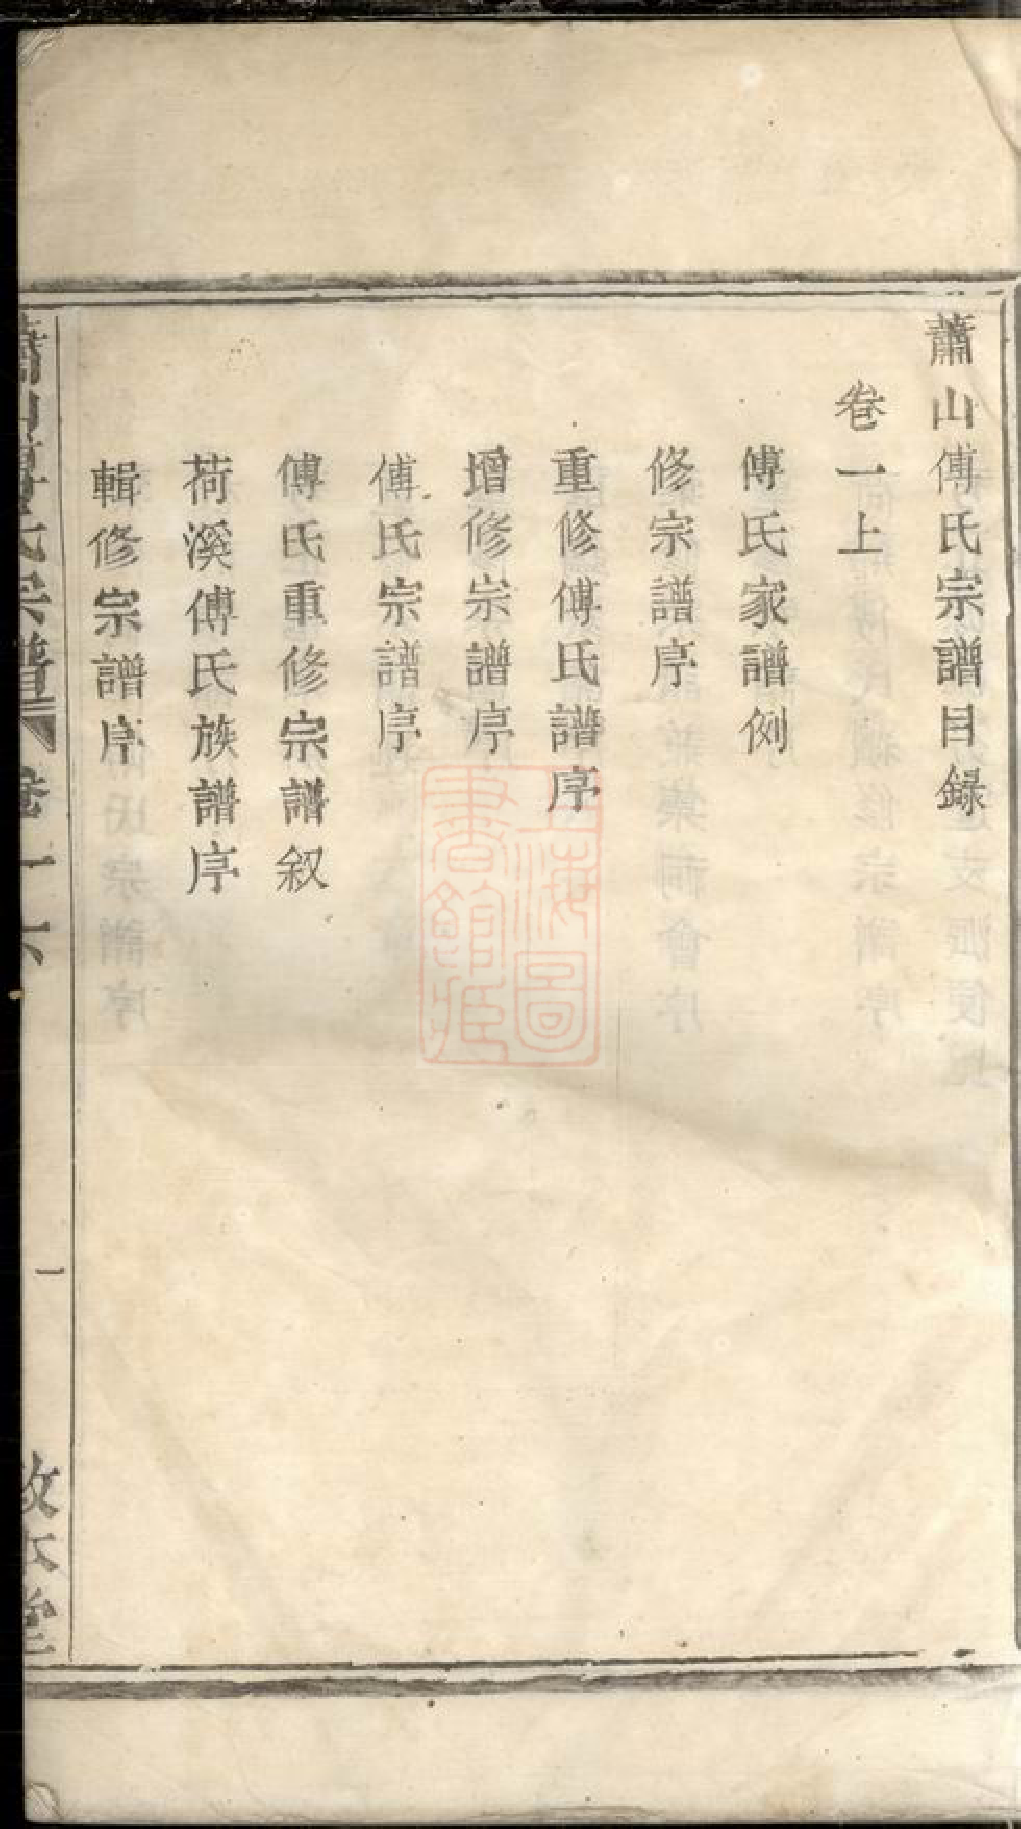 蕭山傅氏宗譜目録
卷一上
傅氏家譜例
修宗譜序
重修傅氏譜序
增修宗譜序
傅氏宗譜序
傅氏重修宗譜叙
荷溪傅氏族譜序
輯修宗譜序
蕭山傅氏宗譜
卷一
一
堂
上海圖書館藏